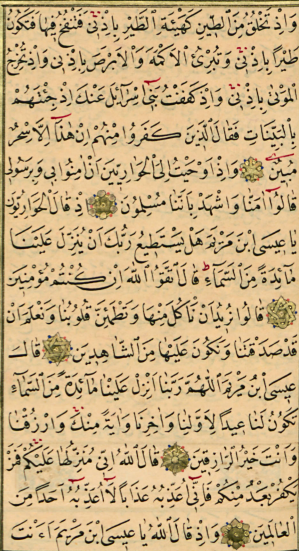 وَاِذْ تَخْلُقُ مِنَ الطِّينِ كَهَيْئَةِ الطَّيْرِ بِاِذْنِي فَتَنْفُخُ فِيهَا فَتَكُونُ
طَيْرًا بِاِذْنِي وَتُبْرِئُ الْاَكْمَهَ وَالْاَبْرَصَ بِاِذْنِي وَاِذْ تُخْرِجُ
الْمَوْتٰى بِاِذْنِي وَاِذْ كَفَفْتُ بَنِي اِسْرَائِلَ عَنْكَ اِذْ جِئْتَهُمْ
بِالْبَيِّنَاتِ فَقَالَ الَّذِينَ كَفَرُوا مِنْهُمْ اِنْ هٰذَا اِلَّا سِحْرٌ
مُبِينٌ وَاِذْ اَوْحَيْتُ اِلَى الْحَوَارِيِّينَ اَنْ اٰمِنُوا بِي وَبِرَسُولِي
قَالُوا اٰمَنَّا وَاشْهَدْ بِاَنَّنَا مُسْلِمُونَ اِذْ قَالَ الْحَوَارِيُّونَ
يَا عِيسَى ابْنَ مَرْيَمَ هَلْ يَسْتَطِيعُ رَبُّكَ اَنْ يُنَزِّلَ عَلَيْنَا
مَائِدَةً مِنَ السَّمَاءِ قَالَ اتَّقُوا اللّٰهَ اِنْ كُنْتُمْ مُؤْمِنِينَ
قَالُوا نُرِيدُ اَنْ نَأْكُلَ مِنْهَا وَتَطْمَئِنَّ قُلُوبُنَا وَنَعْلَمَ اَنْ
قَدْ صَدَقْتَنَا وَنَكُونَ عَلَيْهَا مِنَ الشَّاهِدِينَ قَالَ
عِيسَى ابْنُ مَرْيَمَ اللّٰهُمَّ رَبَّنَا اَنْزِلْ عَلَيْنَا مَائِدَةً مِنَ السَّمَاءِ
تَكُونُ لَنَا عِيدًا لِاَوَّلِنَا وَاٰخِرِنَا وَاٰيَةً مِنْكَ وَارْزُقْنَا
وَاَنْتَ خَيْرُ الرَّازِقِينَ قَالَ اللّٰهُ اِنِّي مُنَزِّلُهَا عَلَيْكُمْ فَمَنْ
يَكْفُرْ بَعْدُ مِنْكُمْ فَاِنِّي اُعَذِّبُهُ عَذَابًا لَا اُعَذِّبُهُ اَحَدًا مِنَ
الْعَالَمِينَ وَاِذْ قَالَ اللّٰهُ يَا عِيسَى ابْنَ مَرْيَمَ ءَاَنْتَ